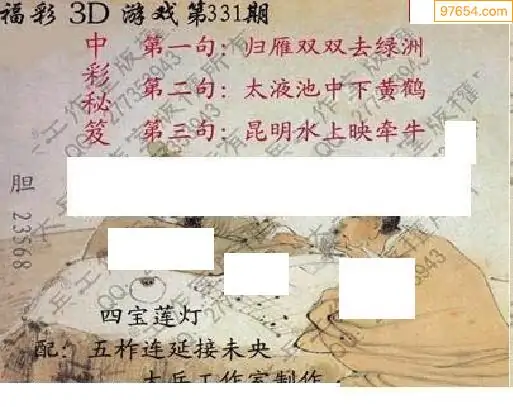 福彩 3D 游戏第331期
97654.com
中彩秘笈
第一句：归雁双双去绿洲
第二句：太液池中下黄鹤
第三句：昆明水上映牵牛
胆 23568
四宝莲灯
配：五柞连延接未央
大兵工作室制作